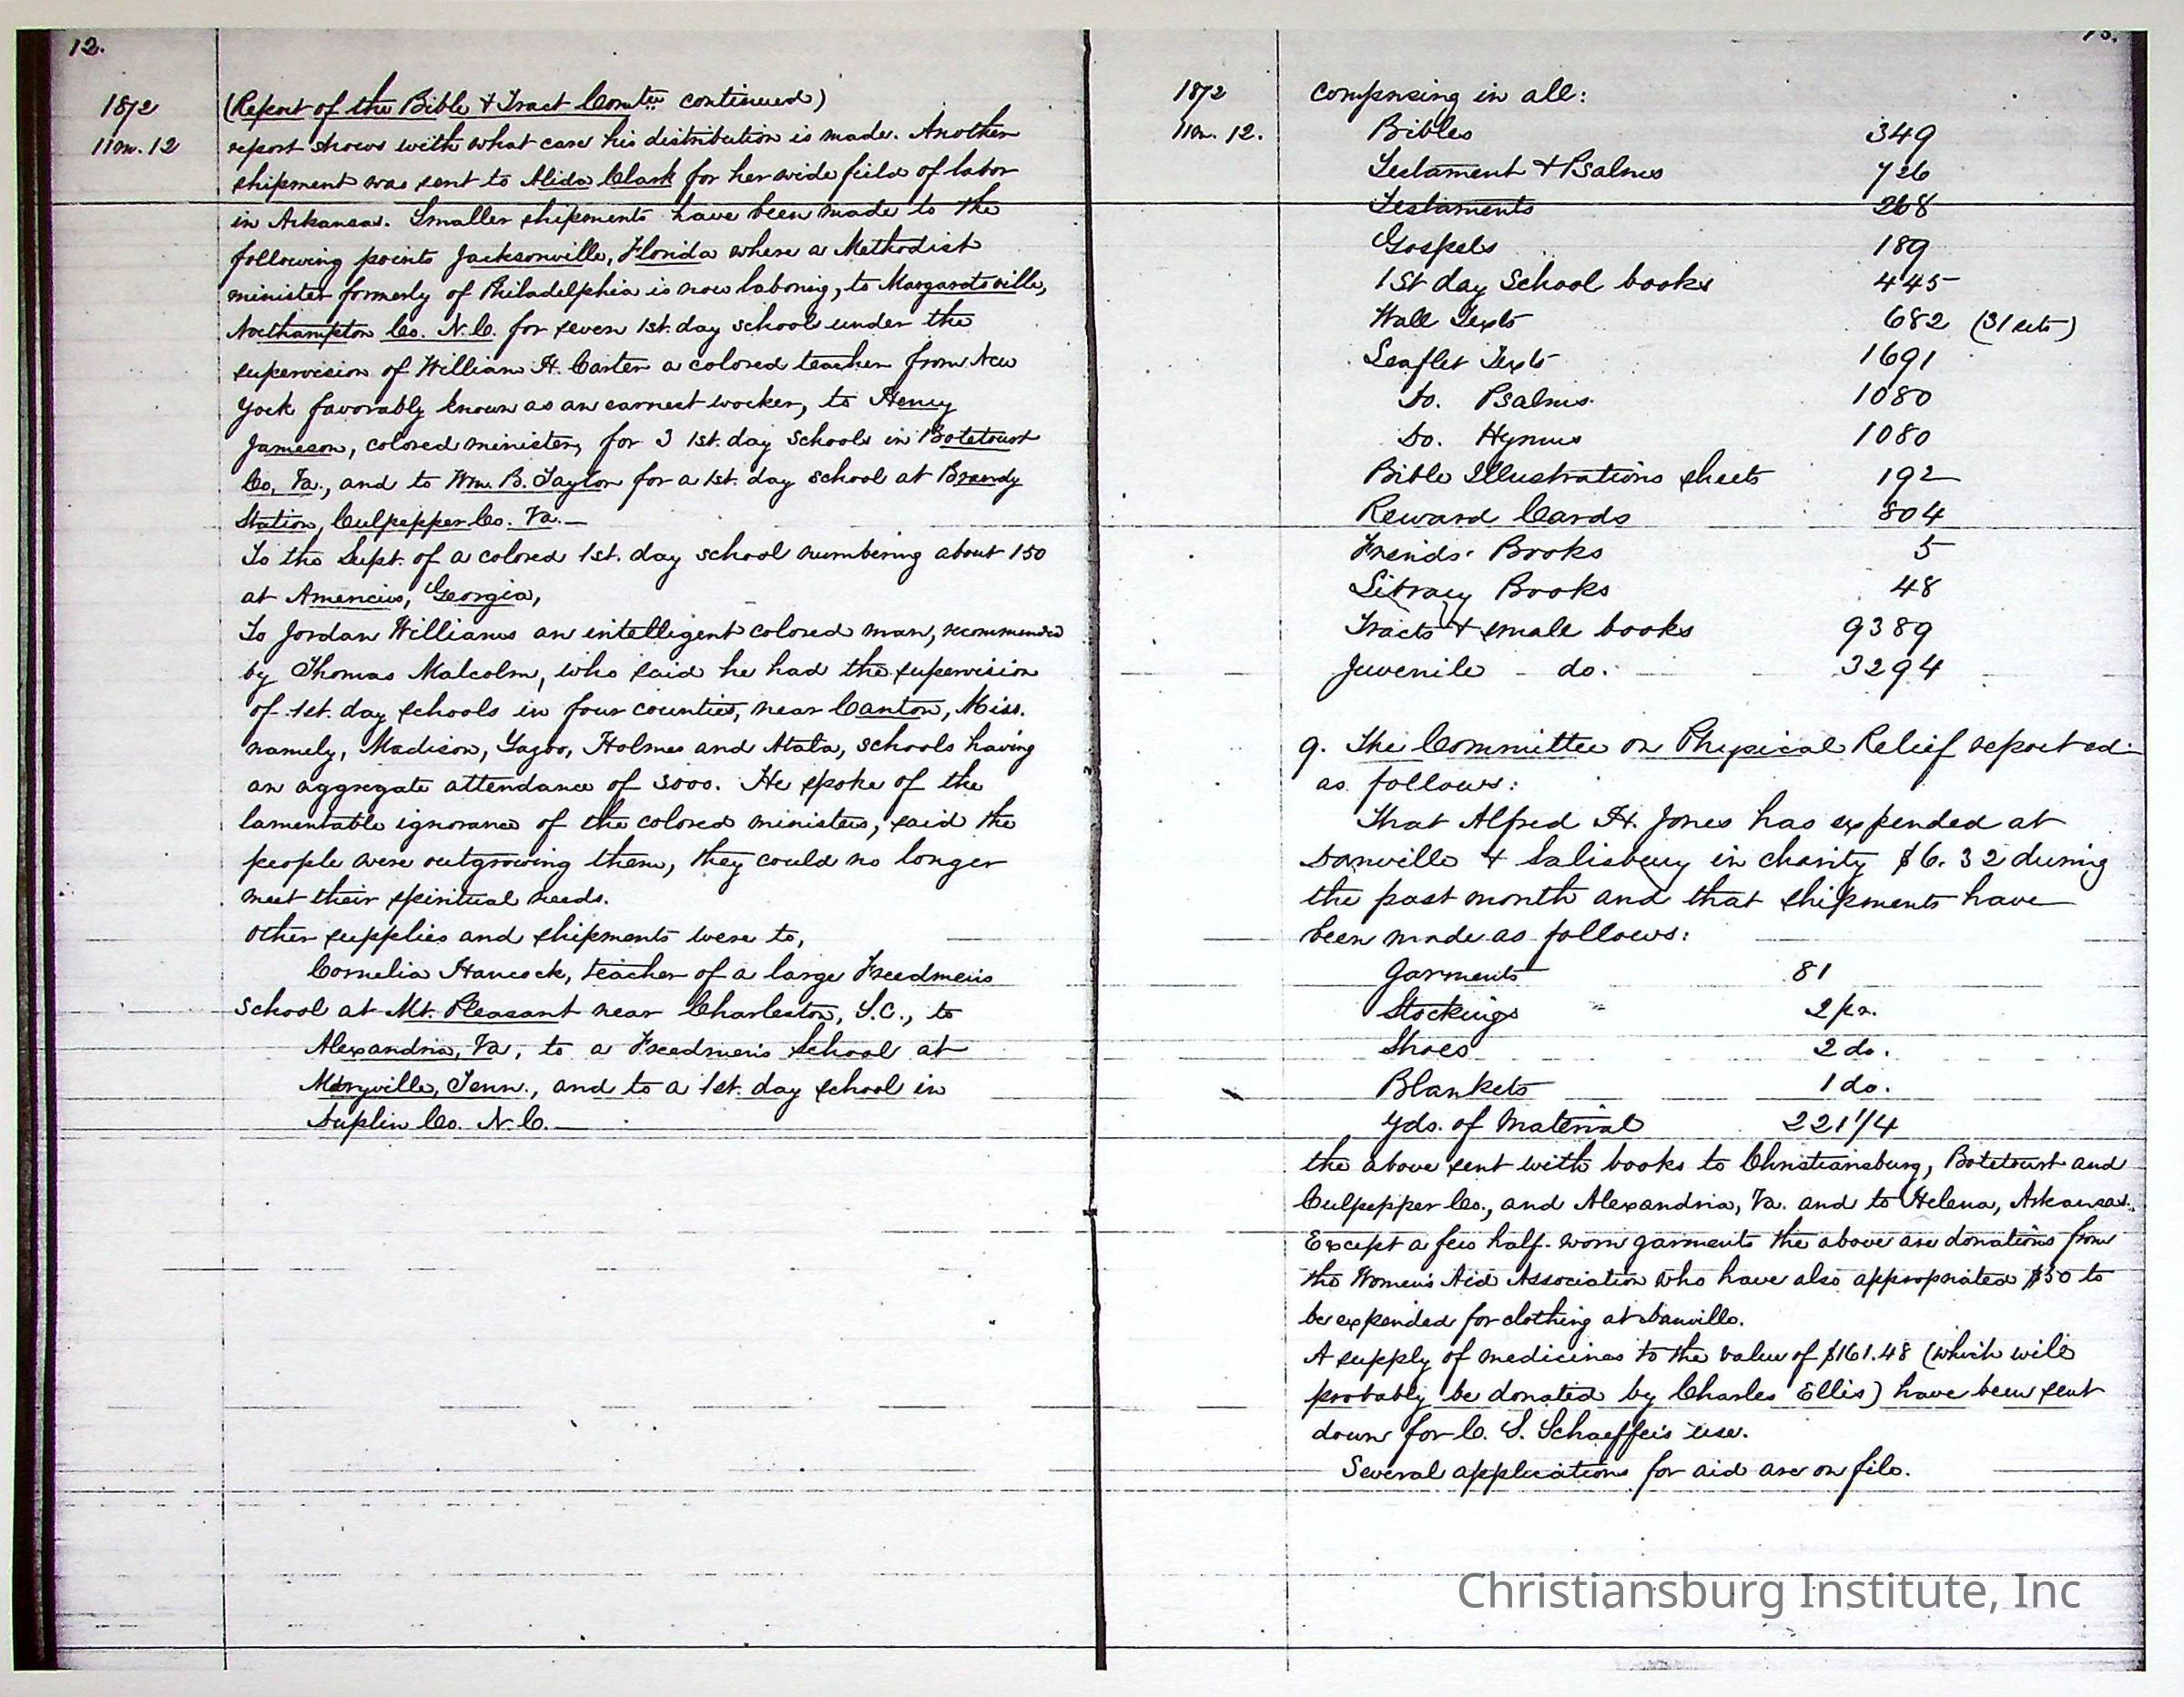 12.
1872
11 mo. 12
(Report of the Bible & Tract Comtee continued)
report shows with what care his distribution is made. Another
shipment was sent to Alida Clark for her wide field of labor
in Arkansas. Smaller shipments have been made to the
following points Jacksonville, Florida where a Methodist
minister formerly of Philadelphia is now laboring, to Margaretsville,
Northampton Co. N.C. for seven 1st. day schools under the
supervision of William H. Carter a colored teacher from New
York favorably known as an earnest worker, to Henry
Jameson, colored minister, for 3 1st. day Schools in Botetourt
Co. Va., and to Wm. B. Taylor for a 1st. day school at Brandy
Station, Culpepper Co. Va.—
To the Supt. of a colored 1st. day school numbering about 150
at Americus, Georgia,
To Jordan Williams an intelligent colored man, recommended
by Thomas Malcolm, who said he had the supervision
of 1st. day schools in four counties, near Canton, Miss.
namely, Madison, Yazoo, Holmes and Atala, schools having
an aggregate attendance of 3000. He spoke of the
lamentable ignorance of the colored ministers, said the
people were outgrowing them, they could no longer
meet their spiritual needs.
Other supplies and shipments were to,
Cornelia Hancock, teacher of a large Freedmen's
School at Mt. Pleasant near Charleston, S.C., to
Alexandria, Va, to a Freedmen's School at
Maryville, Tenn., and to a 1st. day school in
Duplin Co. N.C.—
13.
1872
11 mo. 12.
comprising in all:
Bibles 349
Testament & Psalms 726
Testaments 268
Gospels 189
1st day School books 445
Wall Texts 682 (31 sets)
Leaflet Texts 1691
Do. Psalms 1080
Do. Hymns 1080
Bible Illustrations sheets 192
Reward Cards 804
Friends' Books 5
Library Books 48
Tracts & small books 9389
Juvenile do. 3294
9. The Committee on Physical Relief reported
as follows:
That Alfred H. Jones has expended at
Danville & Salisbury in charity $6.32 during
the past month and that shipments have
been made as follows:
Garments 81
Stockings 2 prs.
Shoes 2 do.
Blankets 1 do.
Yds. of Material 221 1/4
the above sent with books to Christiansburg, Botetourt and
Culpepper Co., and Alexandria, Va. and to Helena, Arkansas.
Except a few half-worn garments the above are donations from
the Women's Aid Association who have also appropriated $50 to
be expended for clothing at Danville.
A supply of medicines to the value of $161.48 (which will
probably be donated by Charles Ellis) have been sent
down for C. S. Schaeffer's use.
Several applications for aid are on file.
Christiansburg Institute, Inc